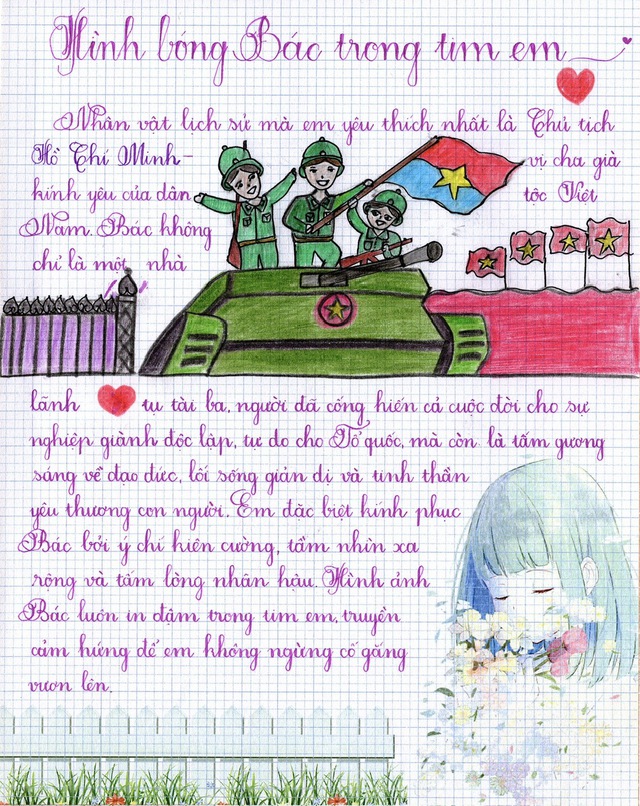 Hình bóng Bác trong tim em
Nhân vật lịch sử mà em yêu thích nhất là Chủ tịch
Hồ Chí Minh- vị cha già
kính yêu của dân tộc Việt
Nam. Bác không
chỉ là một nhà
lãnh tụ tài ba, người đã cống hiến cả cuộc đời cho sự
nghiệp giành độc lập, tự do cho Tổ quốc, mà còn là tấm gương
sáng về đạo đức, lối sống giản dị và tinh thần
yêu thương con người. Em đặc biệt kính phục
Bác bởi ý chí kiên cường, tầm nhìn xa
rộng và tấm lòng nhân hậu. Hình ảnh
Bác luôn in đậm trong tim em, truyền
cảm hứng để em không ngừng cố gắng
vươn lên.